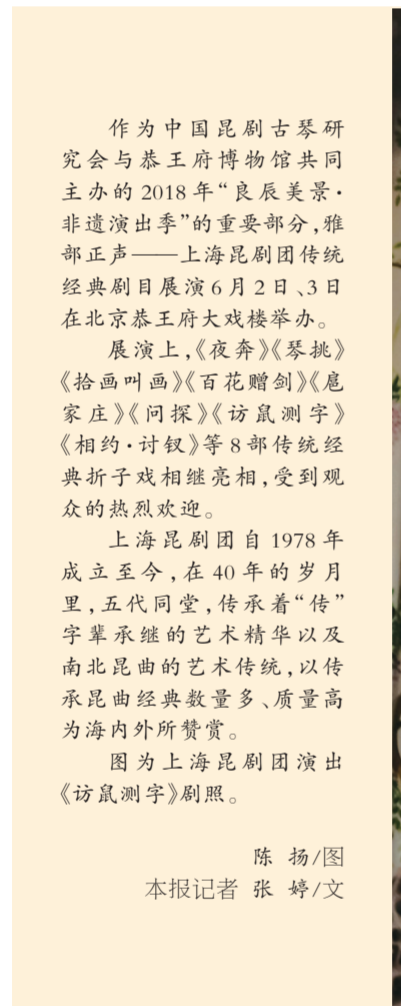 作为中国昆剧古琴研
究会与恭王府博物馆共同
主办的2018年“良辰美景·
非遗演出季”的重要部分,雅
部正声——上海昆剧团传统
经典剧目展演6月2日、3日
在北京恭王府大戏楼举办。
展演上,《夜奔》《琴挑》
《拾画叫画》《百花赠剑》《扈
家庄》《问探》《访鼠测字》
《相约·讨钗》等8部传统经
典折子戏相继亮相,受到观
众的热烈欢迎。
上海昆剧团自1978年
成立至今,在40年的岁月
里,五代同堂,传承着“传”
字辈承继的艺术精华以及
南北昆曲的艺术传统,以传
承昆曲经典数量多、质量高
为海内外所赞赏。
图为上海昆剧团演出
《访鼠测字》剧照。
陈 扬/图
本报记者 张 婷/文